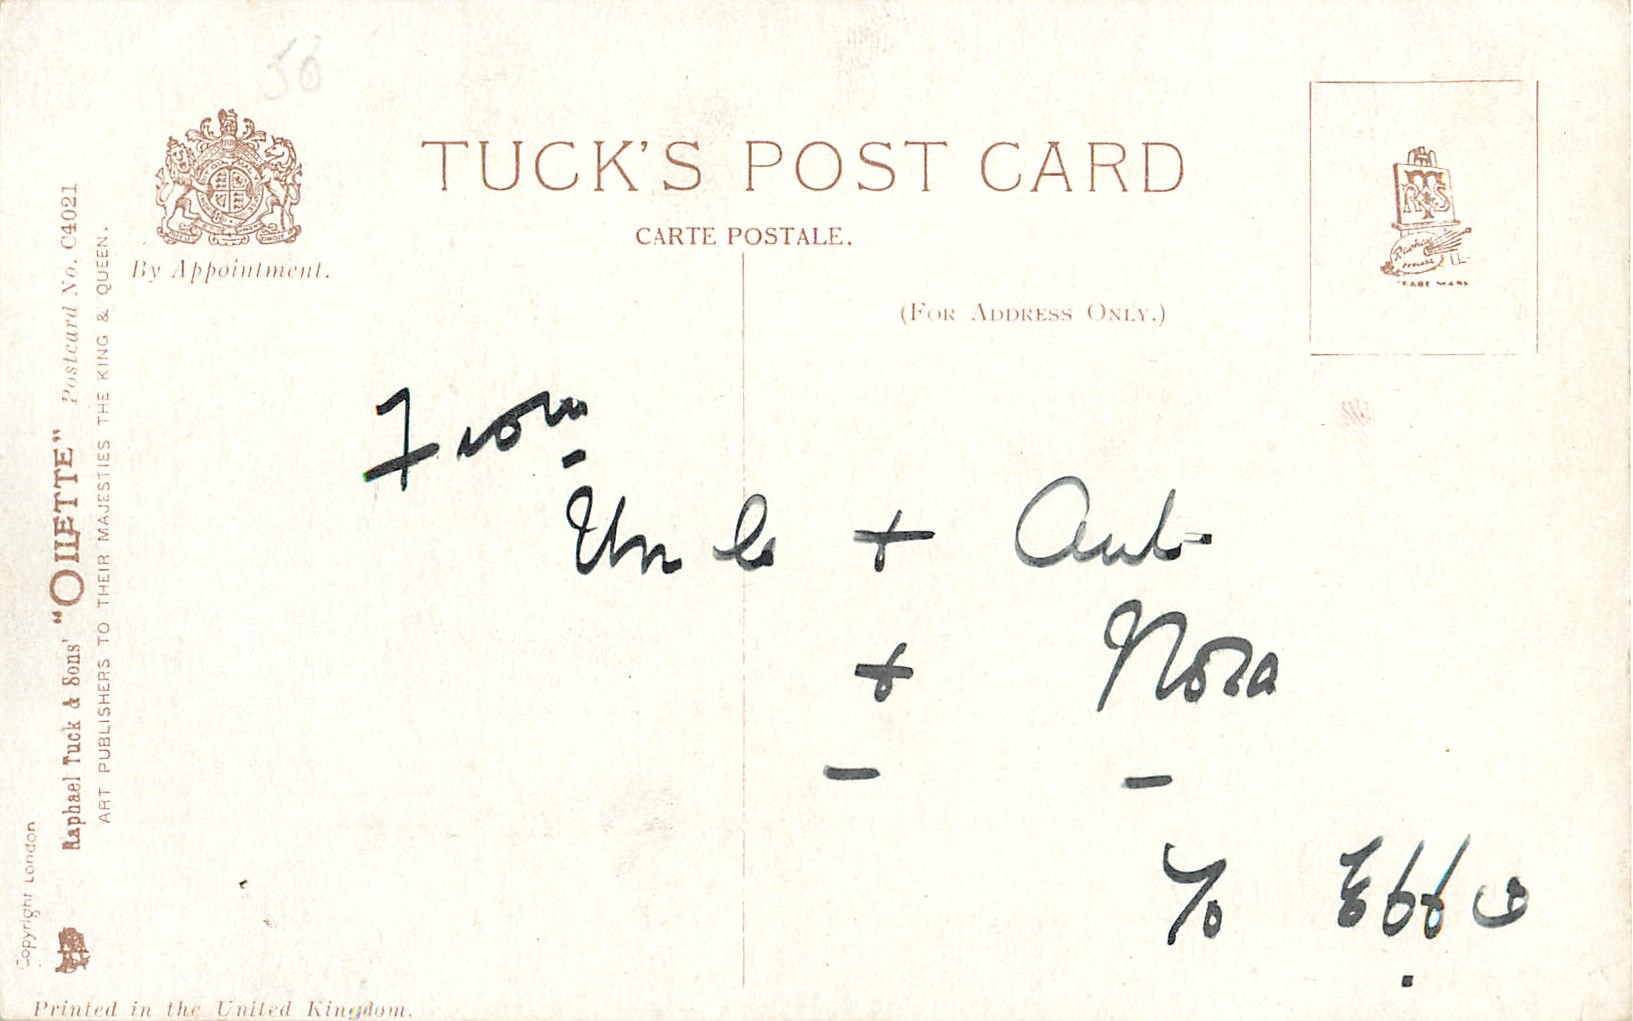 56
TUCK'S POST CARD
CARTE POSTALE.
By Appointment.
(FOR ADDRESS ONLY.)
R T S
TRADE MARK
Copyright London
Raphael Tuck & Sons' "OILETTE" Postcard No. C4021
ART PUBLISHERS TO THEIR MAJESTIES THE KING & QUEEN.
From
Uncle + Aunt
+ Nora
To Effie
Printed in the United Kingdom.